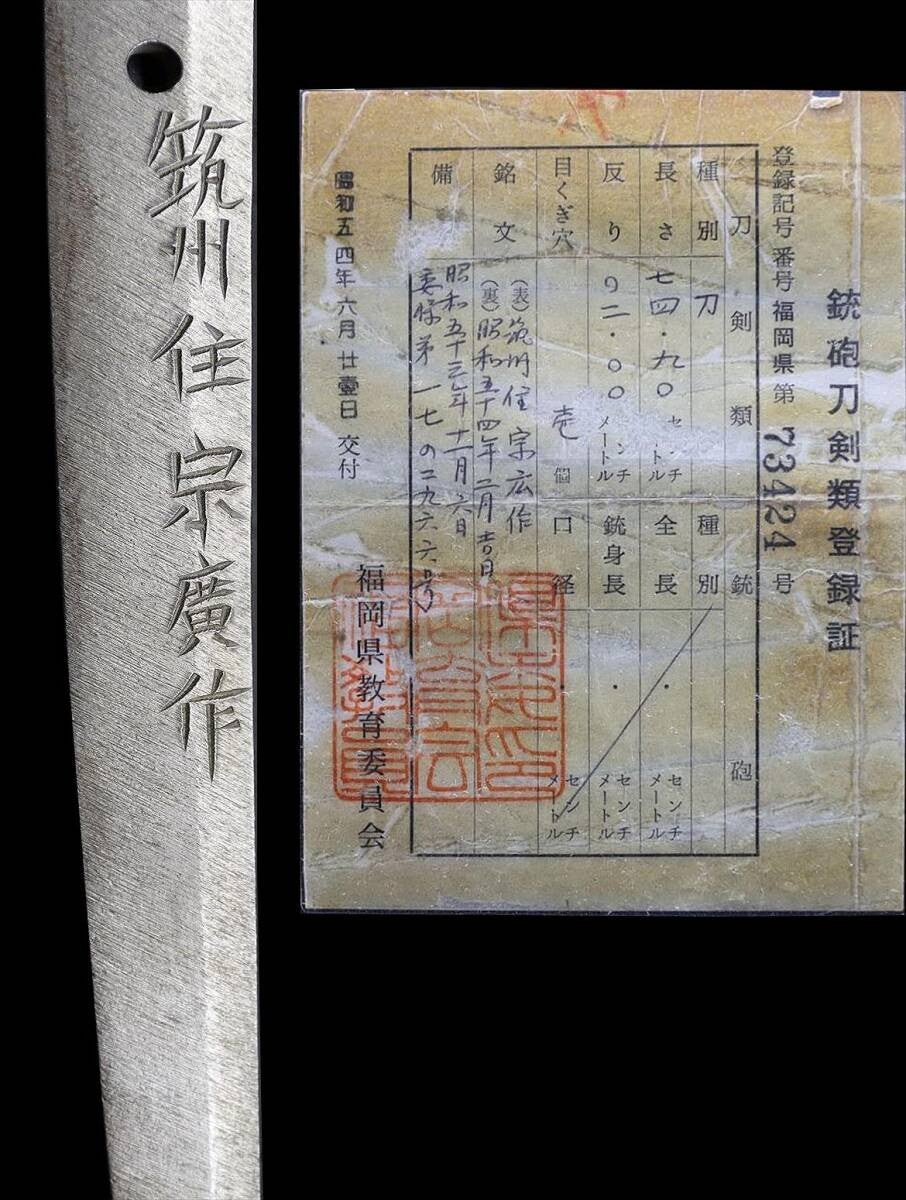 筑州住宗廣作
銃砲刀剣類登録証
登録記号番号福岡県第73424号
刀剣類
銃砲
種別 刀
種別
長さ 七四・九〇 センチメートル
全長 ・ センチメートル
反り 〇二・〇〇 センチメートル
銃身長 ・ センチメートル
目くぎ穴 壱個
口径 センチメートル
銘文 (表)筑州住宗広作
(裏)昭和五十四年二月吉日
備
昭和五十三年十一月六日
委保第一七の二九六六号
昭和五四年六月廿壹日交付
福岡県教育委員会